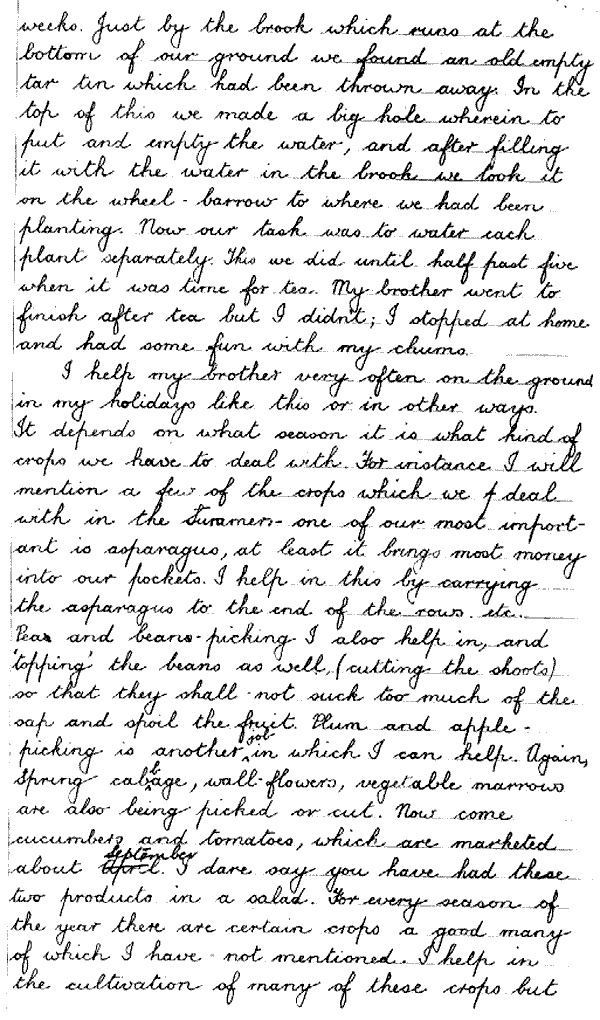 weeks. Just by the brook which runs at the
bottom of our ground we found an old empty
tar tin which had been thrown away. In the
top of this we made a big hole wherein to
put and empty the water, and after filling
it with the water in the brook we took it
on the wheel-barrow to where we had been
planting. Now our task was to water each
plant separately. This we did until half past five
when it was time for tea. My brother went to
finish after tea but I didn't; I stopped at home
and had some fun with my chums.
I help my brother very often on the ground
in my holidays like this or in other ways.
It depends on what season it is what kind of
crops we have to deal with. For instance I will
mention a few of the crops which we deal
with in the Summer- one of our most import-
ant is asparagus, at least it brings most money
into our pockets. I help in this by carrying
the asparagus to the end of the rows. etc.
Pea and beans-picking I also help in, and
'topping' the beans as well, (cutting the shoots)
so that they shall not suck too much of the
sap and spoil the fruit. Plum and apple-
picking is another job in which I can help. Again,
Spring cabbage, wall-flowers, vegetable marrows
are also being picked or cut. Now come
cucumbers and tomatoes, which are marketed
about April September. I dare say you have had these
two products in a salad. For every season of
the year there are certain crops a good many
of which I have not mentioned. I help in
the cultivation of many of these crops but